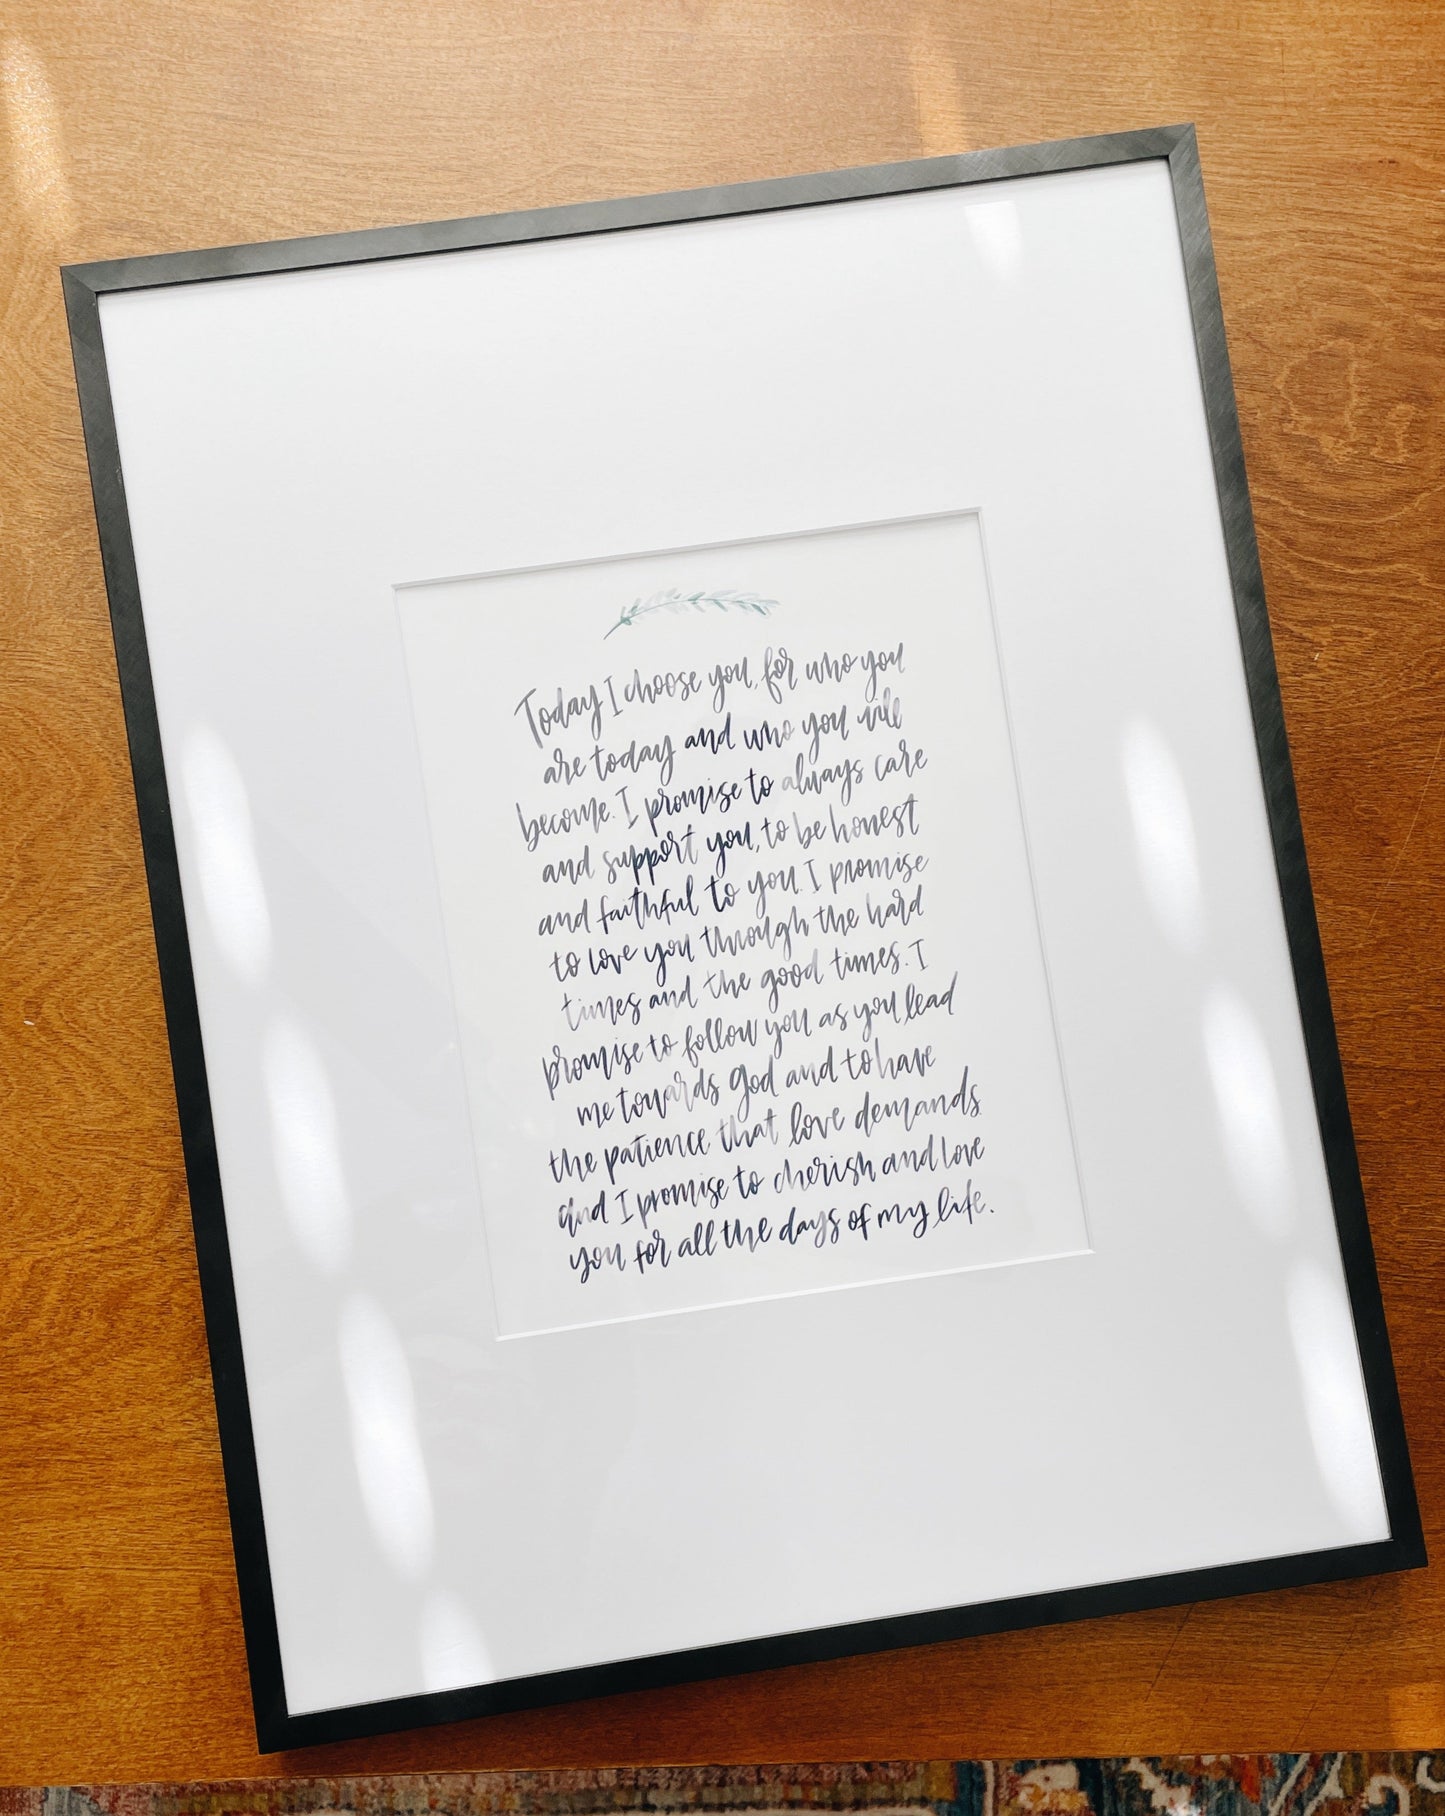 Today I choose you, for who you
are today and who you will
become. I promise to always care
and support you, to be honest
and faithful to you. I promise
to love you through the hard
times and the good times. I
promise to follow you as you lead
me towards God and to have
the patience that love demands
and I promise to cherish and love
you for all the days of my life.